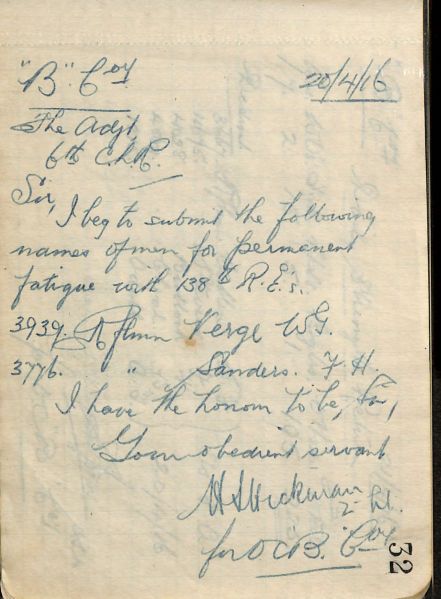 "B" Coy
20/4/16
The Adjt
6th C.L.R.
Sir,
I beg to submit the following
names of men for permanent
fatigue with 138th R.E's.
3939. Rflmn Verge W.G.
3776. " Sanders. F.H.
I have the honour to be, Sir,
Your obedient servant
Hickman
2 Lt.
for O C B. Coy
32